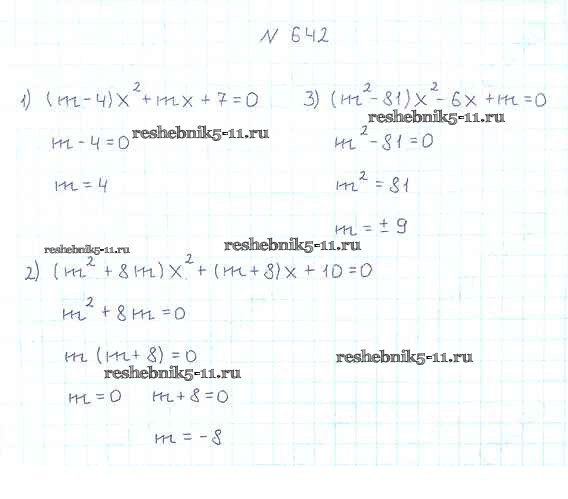 № 642
1) (m-4)x² + mx + 7 = 0
reshebnik5-11.ru
m - 4 = 0
m = 4
3) (m² - 81)x² - 6x + m = 0
reshebnik5-11.ru
m² - 81 = 0
m² = 81
m = ± 9
reshebnik5-11.ru
reshebnik5-11.ru
2) (m² + 8m)x² + (m+8)x + 10 = 0
m² + 8m = 0
m (m+8) = 0
reshebnik5-11.ru
reshebnik5-11.ru
m = 0 m + 8 = 0
m = -8